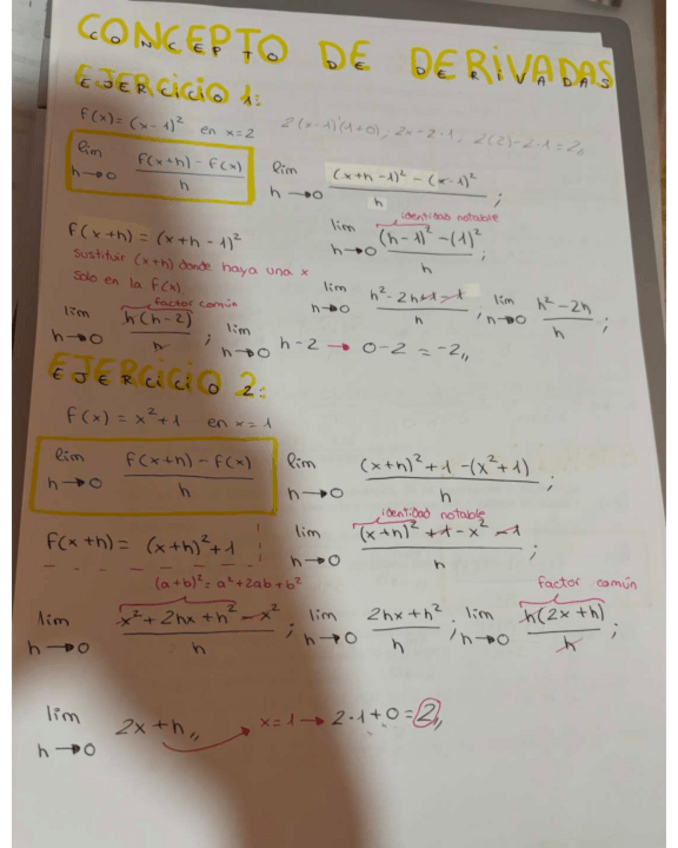 CONCEPTO DE DERIVADAS
EJERCICIO 1:
f(x) = (x-1)² en x=2 2(x-1)'(1+0); 2x-2·1; 2(2)-2·1=2,,
lim h→0 f(x+h) - f(x) / h lim h→0 (x+h-1)² - (x-1)² / h ;
f(x+h) = (x+h-1)² lim h→0 identidad notable (h-1)² - (1)² / h ;
sustituir (x+h) donde haya una x
solo en la f(x).
lim h→0 h² - 2h + 1 - 1 / h ; lim h→0 h² - 2h / h ;
factor común
lim h→0 h(h-2) / h ; lim h→0 h-2 → 0-2 = -2,,
EJERCICIO 2:
f(x) = x²+1 en x=1
lim h→0 f(x+h) - f(x) / h lim h→0 (x+h)² + 1 - (x²+1) / h ;
f(x+h) = (x+h)² + 1 lim h→0 identidad notable (x+h)² + 1 - x² - 1 / h ;
(a+b)² = a² + 2ab + b² factor común
lim h→0 x² + 2hx + h² - x² / h ; lim h→0 2hx + h² / h ; lim h→0 h(2x+h) / h ;
lim h→0 2x + h,, → x=1 → 2·1+0 = 2,,